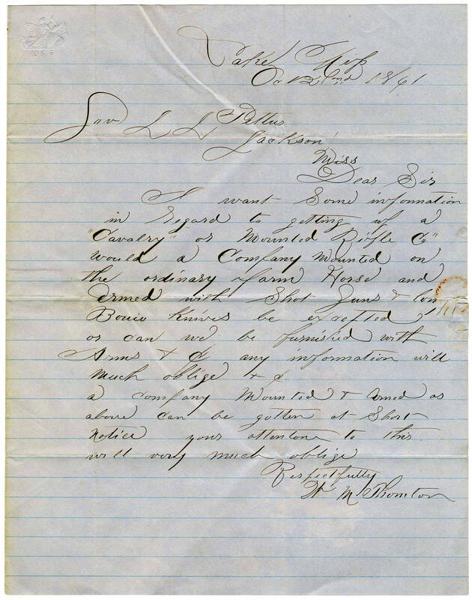 Lake Miss
Oct 2nd 1861
Gov J. J. Pettus
Jackson
Miss
Dear Sir
I want Some information
in Regard to getting up a
Cavalry" or Mounted Rifle Co"
would a Company Mounted on
the ordinary farm Horse and
armed with Shot Guns &
Bouie Knives be excepted,
or can we be furnished with
Arms & C any information will
Much oblige & c
a company Mounted & armed as
above can be gotten at Short
Notice your attention to this
will very much oblige
Respectfully
W. M. Thornton